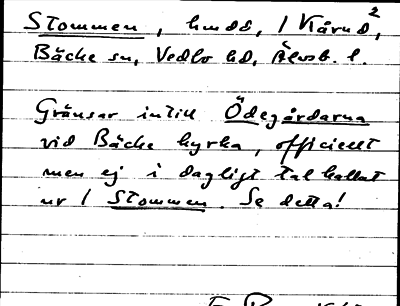 Stommen, hmdd, / Kårud²,
Bäcke sn, Vedbo hd, Älvsb. l.
Gränsar intill Ödegårdarna
vid Bäcke kyrka, officiellt
men ej i dagligt tal kallat
nr / Stommen. Se detta!